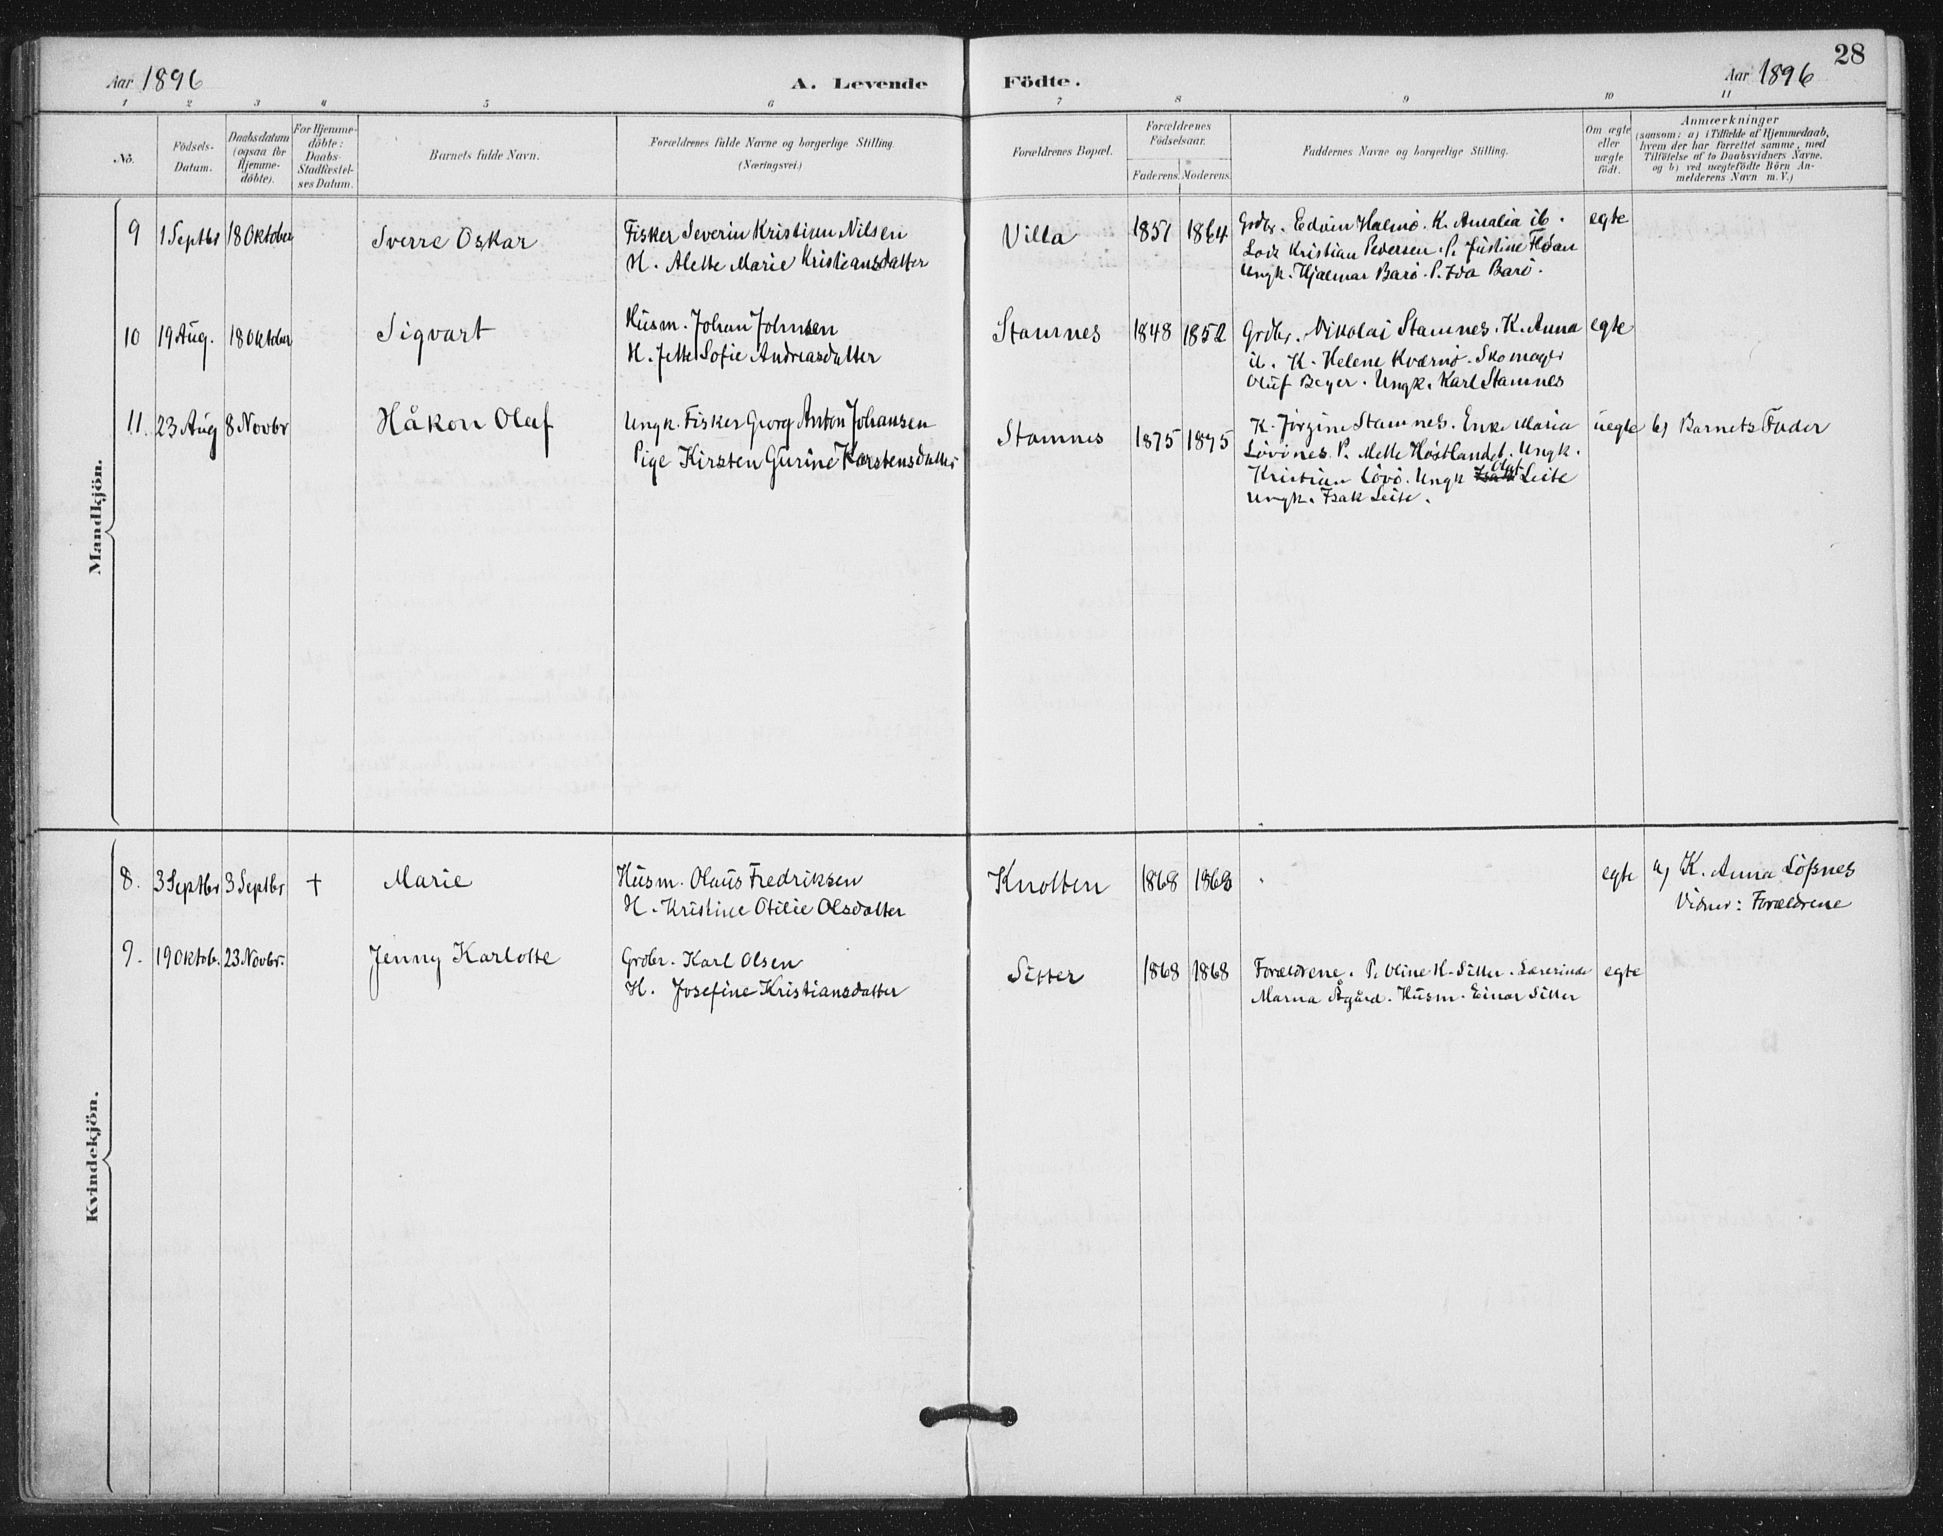 28
Aar 1896
A. Levende Födte.
Aar 1896
1 2 3 4 5 6 7 8 9 10 11
No.
Födsels-
Datum.
Daabsdatum
(ogsaa for
Hjemme-
döbte).
For Hjemme-
döbte:
Daabs-
Stadfæstel-
ses Datum.
Barnets fulde Navn.
Forældrenes fulde Navne og borgerlige Stilling.
(Næringsvei.)
Forældrenes Bopæl.
Forældrenes
Födselsaar.
Faderens. Moderens.
Faddernes Navne og borgerlige Stilling.
Om ægte
eller
uægte
födt.
Anmærkninger
(saasom: a) i Tilfælde af Hjemmedaab,
hvem der har forrettet samme, med
Tilföielse af to Daabsvidners Navne,
og b) ved uægtefödte Börn An-
melderens Navn m. V.)
Mandkjön.
9 1 Septbr 18 Oktober Sverre Oskar
Fisker Severin Kristian Nilsen
H. Alette Marie Kristiansdatter
Villa 1857 1864
Grdbr. Edvin Halmö. K. Amalia ib.
Lods Kristian Pedersen. P. Justine Floan
Ungk. Hjalmar Barö. P. Ida Barö.
egte
10 19 Aug. 18 Oktober Sigvart
Husm. Johan Johnsen
H. Jette Sofie Andreasdatter
Stamnes 1848 1852
Grdbr. Nikolai Stamnes. K. Anna
ib. K. Helene Kværnö. Skomager
Oluf Beyer. Ungk. Karl Stamnes
egte
11. 23 Aug 8 Novbr Håkon Olaf
Ungk. Fisker Georg Anton Johansen
Pige Kirsten Gurine Karstensdatter
Stamnes 1875 1875
K. Jörgine Stamnes. Enke Maria
Lövönes. P. Mette Höstlandet. Ungk.
Kristian Lövö. Ungk Olaf Leite
Ungk. Isak Leite.
uegte
b) Barnets Fader
Kvindekjön.
8. 3 Septbr 3 Septbr. † Marie
Husm. Olaus Fredriksen
H. Kristine Otilie Olsdatter
Knotten 1868 1868
egte
a) K. Anna Löfsnes
Vidner: Forældrene
9. 19 Oktob. 23 Novbr. Jenny Karlotte
Grdbr. Karl Olsen
H. Josefine Kristiansdatter
Sitter 1868 1868
Forældrene. P. Oline K. Sitter. Lærerinde
Marna Ågård. Husm. Einar Sitter
egte